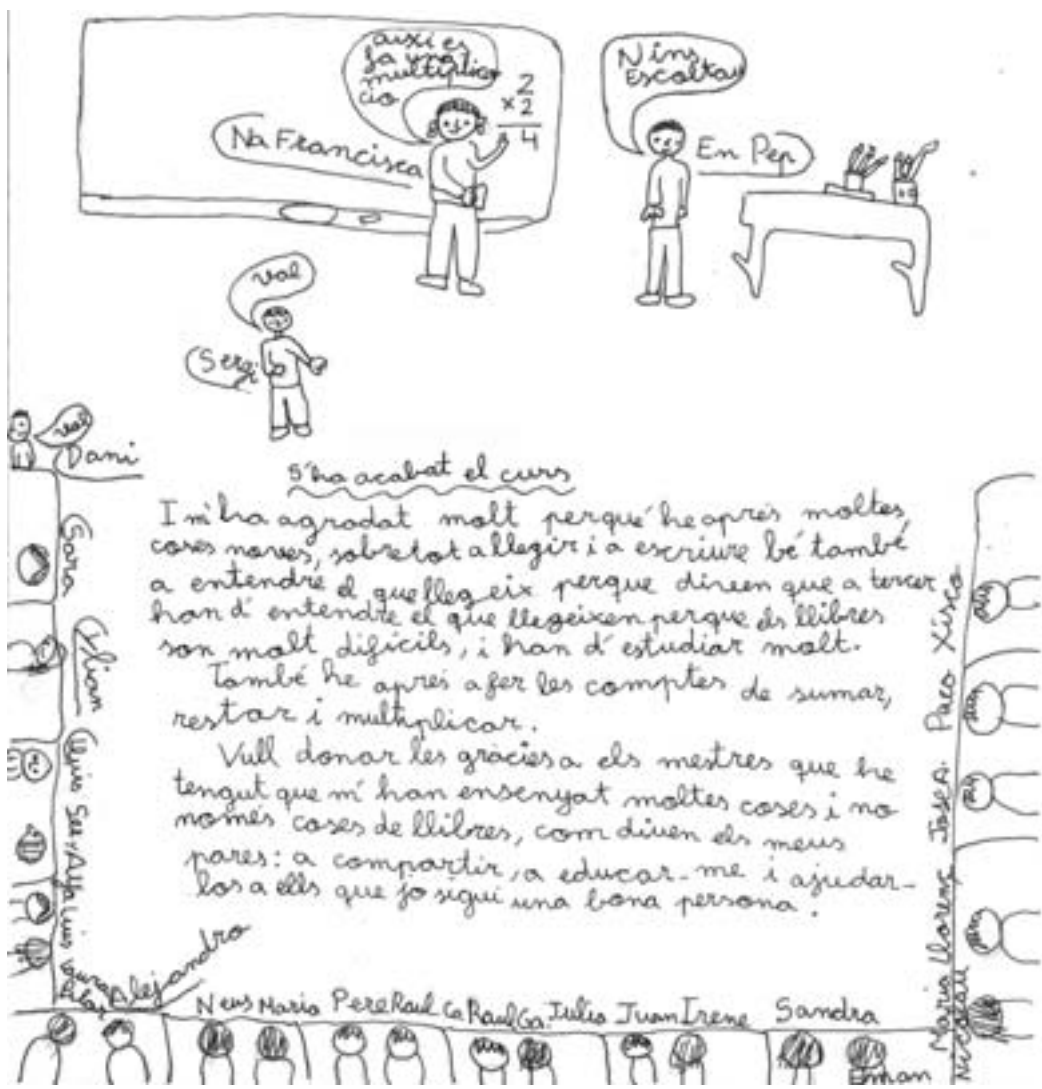 això es
fa una
multiplica
cio
2
x2
4
Na Francisca
Nins
Escoltau
En Pep
val
Sergi
val
Dani
S'ha acabat el curs
I m'ha agradat molt perqué he aprés moltes
coses noves, sobretot a llegir i a escriure bé també
a entendre el que llegeix perque diuen que a tercer
han d'entendre el que llegeixen perque els llibres
son molt difícils, i han d'estudiar molt.
També he aprés a fer les comptes de sumar,
restar i multiplicar.
Vull donar les gràcies a els mestres que he
tengut que m'han ensenyat moltes coses i no
només coses de llibres, com diuen els meus
pares: a compartir, a educar-me i ajudar-
los a ells que jo sigui una bona persona.
Sara
Luis
Laura
Alejandro
Neus Maria Pere Raul Ca Raul Ga. Julio Juan Irene Sandra
Eman
Maria Llorenç Josep. Paco Xisco
Nicolau